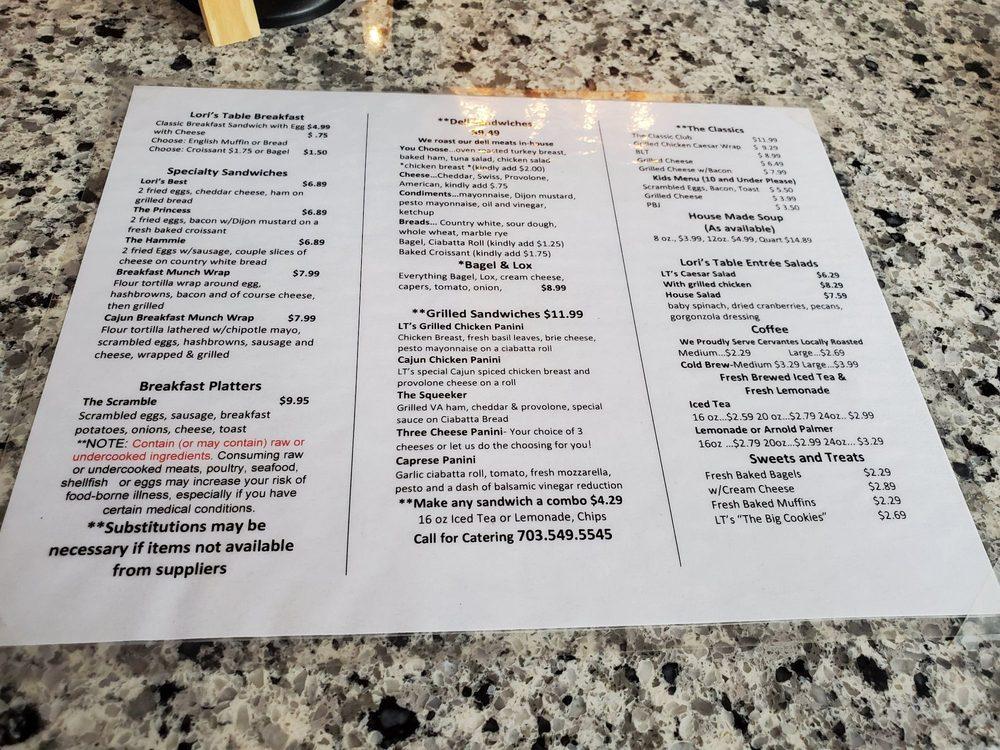 Lori's Table Breakfast
Classic Breakfast Sandwich with Egg $4.99
with Cheese $ .75
Choose: English Muffin or Bread
Choose: Croissant $1.75 or Bagel $1.50
Specialty Sandwiches
Lori's Best $6.89
2 fried eggs, cheddar cheese, ham on
grilled bread
The Princess $6.89
2 fried eggs, bacon w/Dijon mustard on a
fresh baked croissant
The Hammie $6.89
2 fried Eggs w/sausage, couple slices of
cheese on country white bread
Breakfast Munch Wrap $7.99
Flour tortilla wrap around egg,
hashbrowns, bacon and of course cheese,
then grilled
Cajun Breakfast Munch Wrap $7.99
Flour tortilla lathered w/chipotle mayo,
scrambled eggs, hashbrowns, sausage and
cheese, wrapped & grilled
Breakfast Platters
The Scramble $9.95
Scrambled eggs, sausage, breakfast
potatoes, onions, cheese, toast
**NOTE: Contain (or may contain) raw or
undercooked ingredients. Consuming raw
or undercooked meats, poultry, seafood,
shellfish or eggs may increase your risk of
food-borne illness, especially if you have
certain medical conditions.
**Substitutions may be
necessary if items not available
from suppliers
**Deli Sandwiches
$9.49
We roast our deli meats in-house
You Choose...oven roasted turkey breast,
baked ham, tuna salad, chicken salad
*chicken breast *(kindly add $2.00)
Cheese...Cheddar, Swiss, Provolone,
American, kindly add $.75
Condiments...mayonnaise, Dijon mustard,
pesto mayonnaise, oil and vinegar,
ketchup
Breads... Country white, sour dough,
whole wheat, marble rye
Bagel, Ciabatta Roll (kindly add $1.25)
Baked Croissant (kindly add $1.75)
*Bagel & Lox
Everything Bagel, Lox, cream cheese,
capers, tomato, onion, $8.99
**Grilled Sandwiches $11.99
LT's Grilled Chicken Panini
Chicken Breast, fresh basil leaves, brie cheese,
pesto mayonnaise on a ciabatta roll
Cajun Chicken Panini
LT's special Cajun spiced chicken breast and
provolone cheese on a roll
The Squeeker
Grilled VA ham, cheddar & provolone, special
sauce on Ciabatta Bread
Three Cheese Panini- Your choice of 3
cheeses or let us do the choosing for you!
Caprese Panini
Garlic ciabatta roll, tomato, fresh mozzarella,
pesto and a dash of balsamic vinegar reduction
**Make any sandwich a combo $4.29
16 oz Iced Tea or Lemonade, Chips
Call for Catering 703.549.5545
**The Classics
The Classic Club $11.99
Grilled Chicken Caesar Wrap $ 9.29
BLT $ 8.99
Grilled Cheese $ 6.49
Grilled Cheese w/Bacon $ 7.99
Kids Menu (10 and Under Please)
Scrambled Eggs, Bacon, Toast $ 5.50
Grilled Cheese $ 3.99
PBJ $ 3.50
House Made Soup
(As available)
8 oz., $3.99, 12oz. $4.99, Quart $14.89
Lori's Table Entrée Salads
LT's Caesar Salad $6.29
With grilled chicken $8.29
House Salad $7.59
baby spinach, dried cranberries, pecans,
gorgonzola dressing
Coffee
We Proudly Serve Cervantes Locally Roasted
Medium...$2.29 Large...$2.69
Cold Brew-Medium $3.29 Large...$3.99
Fresh Brewed Iced Tea &
Fresh Lemonade
Iced Tea
16 oz...$2.59 20 oz...$2.79 24oz.. $2.99
Lemonade or Arnold Palmer
16oz ...$2.79 20oz...$2.99 24oz... $3.29
Sweets and Treats
Fresh Baked Bagels $2.29
w/Cream Cheese $2.89
Fresh Baked Muffins $2.29
LT's "The Big Cookies" $2.69